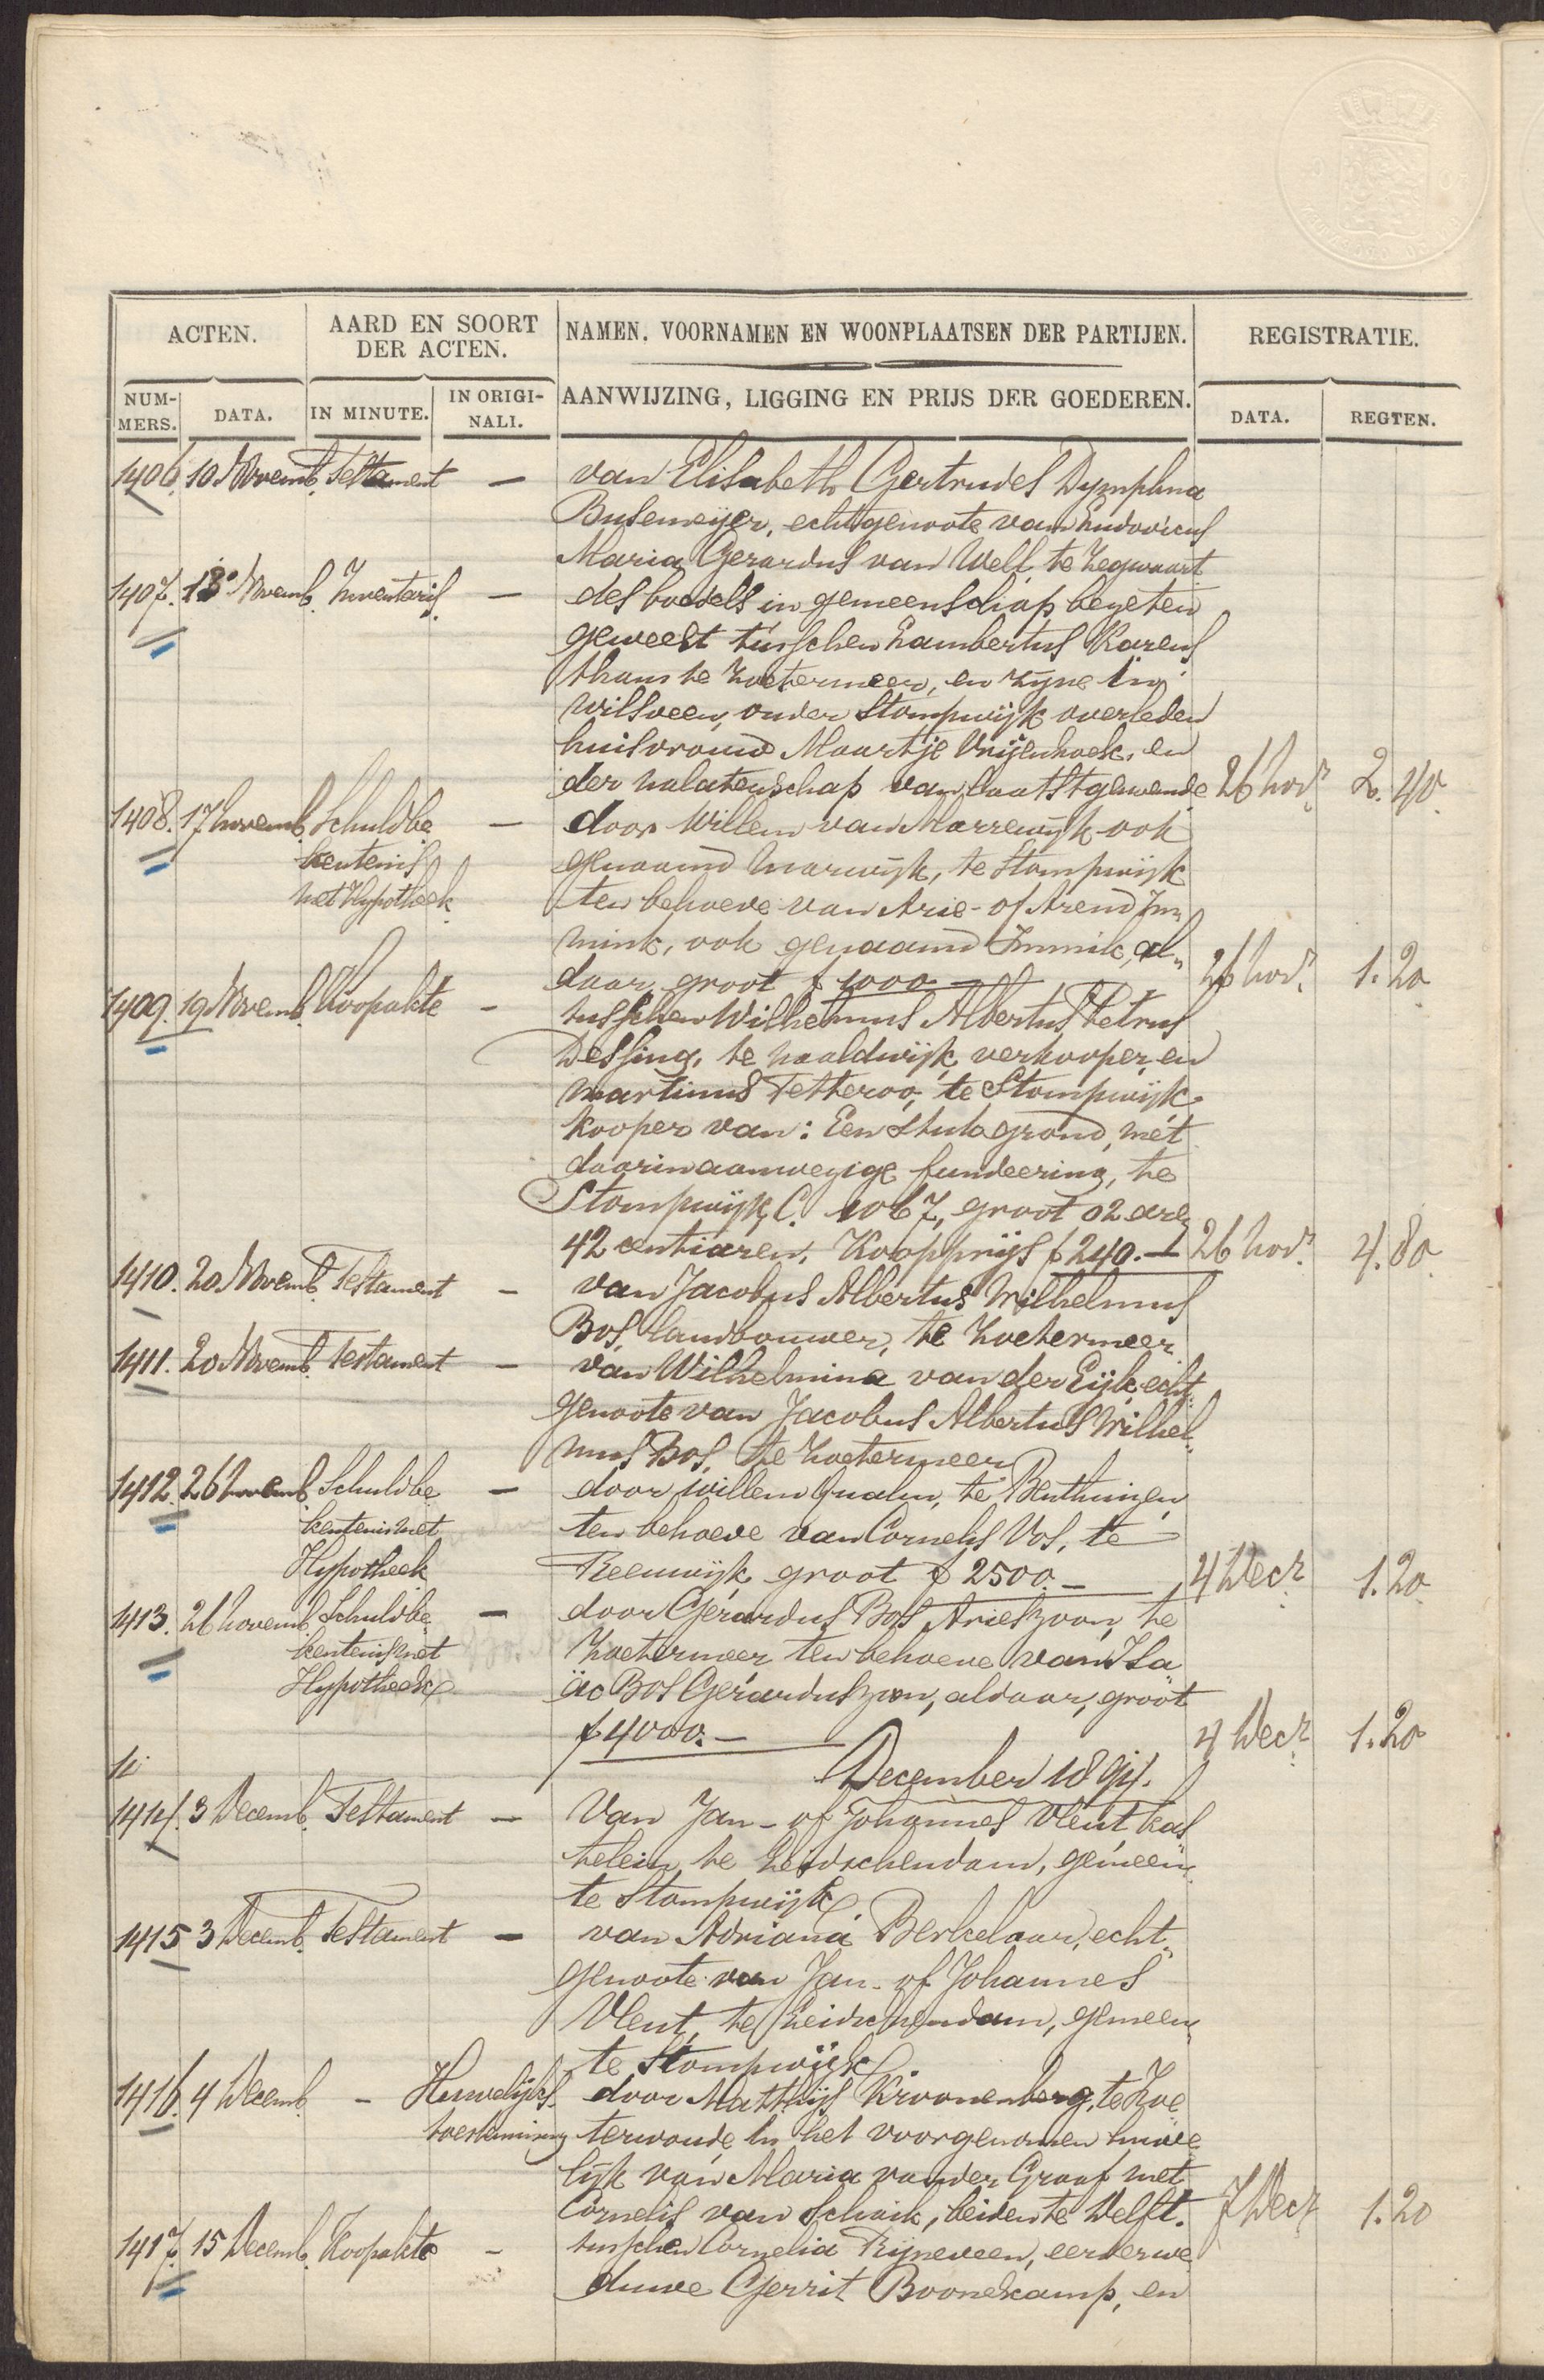 ACTEN.
AARD EN SOORT
DER ACTEN.
NAMEN. VOORNAMEN EN WOONPLAATSEN DER PARTIJEN.
AANWIJZING, LIGGING EN PRIJS DER GOEDEREN.
REGISTRATIE.
NUM-
MERS.
DATA.
IN MINUTE.
IN ORIGI-
NALI.
DATA.
REGTEN.
1406. 10 Novemb. Testament — van Elisabeth Gertrudes Dymphna
Busemeijer, echtgenoote van Ludovicus
Maria Gerardus van Well, te Zegwaart
1407. 13 Novemb. Inventaris — des boedels in gemeenschap bezeten
geweest tusschen Lambertus Karens
thans te Zoetermeer, en zijne te
Wilsveen, onder Stompwijk overleden
huisvrouw Maartje Vrijenhoek, en
der nalatenschap van laatstgenoemde 26 Novr. 2.40
1408. 17 Novemb. Schuldbe — door Willem van Marrewijk ook
kentenis genaamd Marwijk, te Stompwijk
met Hypotheek ten behoeve van Arie- of Arend Im„
mink, ook genaamd Immik, al„
daar, groot f 1000.— 26 Novr. 1.20
1409. 19 Novemb. Koopakte — tusschen Wilhelmus Albertus Petrus
Dessing, te Naaldwijk verkooper, en
Martinus Tetteroo, te Stompwijk
kooper van: Een stuk grond, met
daarin aanwezige fundeering, te
Stompwijk, C. 1067, groot 02 are
42 centiaren. Koopprijs f 240.— 26 Novr. 4.80
1410. 20 Novemb. Testament — van Jacobus Albertus Wilhelmus
Bos, landbouwer, te Zoetermeer
1411. 20 Novemb. Testament — van Wilhelmina van der Eijk, echt„
genoote van Jacobus Albertus Wilhel„
mus Bos, te Zoetermeer
1412. 26 Novemb. Schuldbe — door Willem Qualm, te Benthuizen,
kentenis met ten behoeve van Cornelis Vos, te
Hypotheek Reeuwijk groot f 2500.— 4 Decr. 1.20
1413. 26 Novemb. Schuldbe — door Gerardus Bos Arieszoon, te
kentenis met Zoetermeer ten behoeve van Isa
Hypotheek äc Bos Gerarduszoon, aldaar, groot
f 4000.— 4 Decr. 1.20
December 1894.
1414. 3 Decemb. Testament — Van Jan- of Johannes Vleut kas„
telein, te Leidschendam, gemeen„
te Stompwijk
1415 3 Decemb. Testament — van Adriana Berkelaar, echt„
genoote van Jan- of Johannes
Vleut, te Leidschendam, gemeen„
te Stompwijk.
1416. 4 Decemb. — Huwelijks door Matthijs Kroonenberg, te Zoe
toestemming terwoude in het voorgenomen huwe
lijk van Maria van der Graaf met
Cornelis van Schaik, beiden te Delft. 7 Decr 1.20
1417. 15 Decemb. Koopakte — tusschen Cornelia Rijneveen, eerder we
duwe Gerrit Boonekamp, en